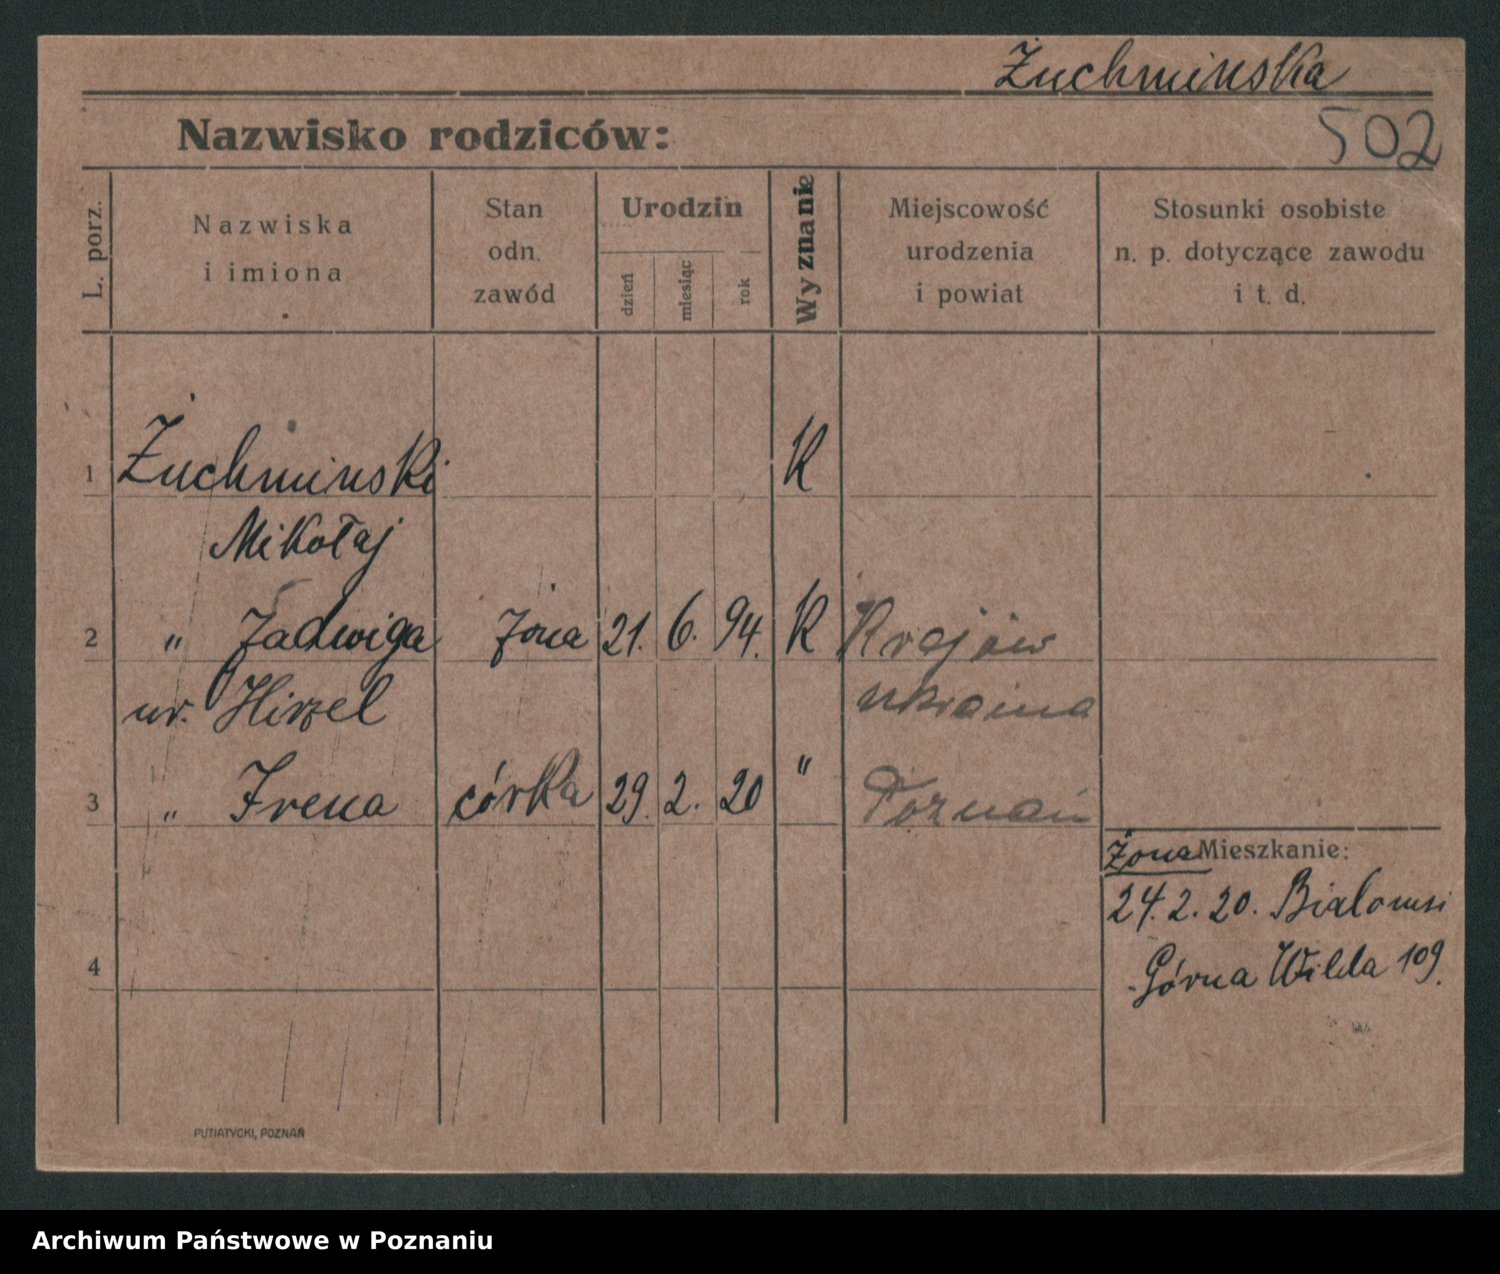 Żuchminska
502
Nazwisko rodziców:
L. porz.
Nazwiska
i imiona
Stan
odn.
zawód
Urodzin
dzień
miesiąc
rok
Wyznanie
Miejscowość
urodzenia
i powiat
Stosunki osobiste
n. p. dotyczące zawodu
i t. d.
1 Żuchminski K
Mikołaj
2 " Jadwiga żona 21. 6. 94. K Krajów
ur. Hirzel Ukraina
3 " Irena córka 29. 2. 20 " Poznań
Żona Mieszkanie:
24. 2. 20.
Górna Wilda 109.
4
PUTIATYCKI, POZNAŃ
Archiwum Państwowe w Poznaniu